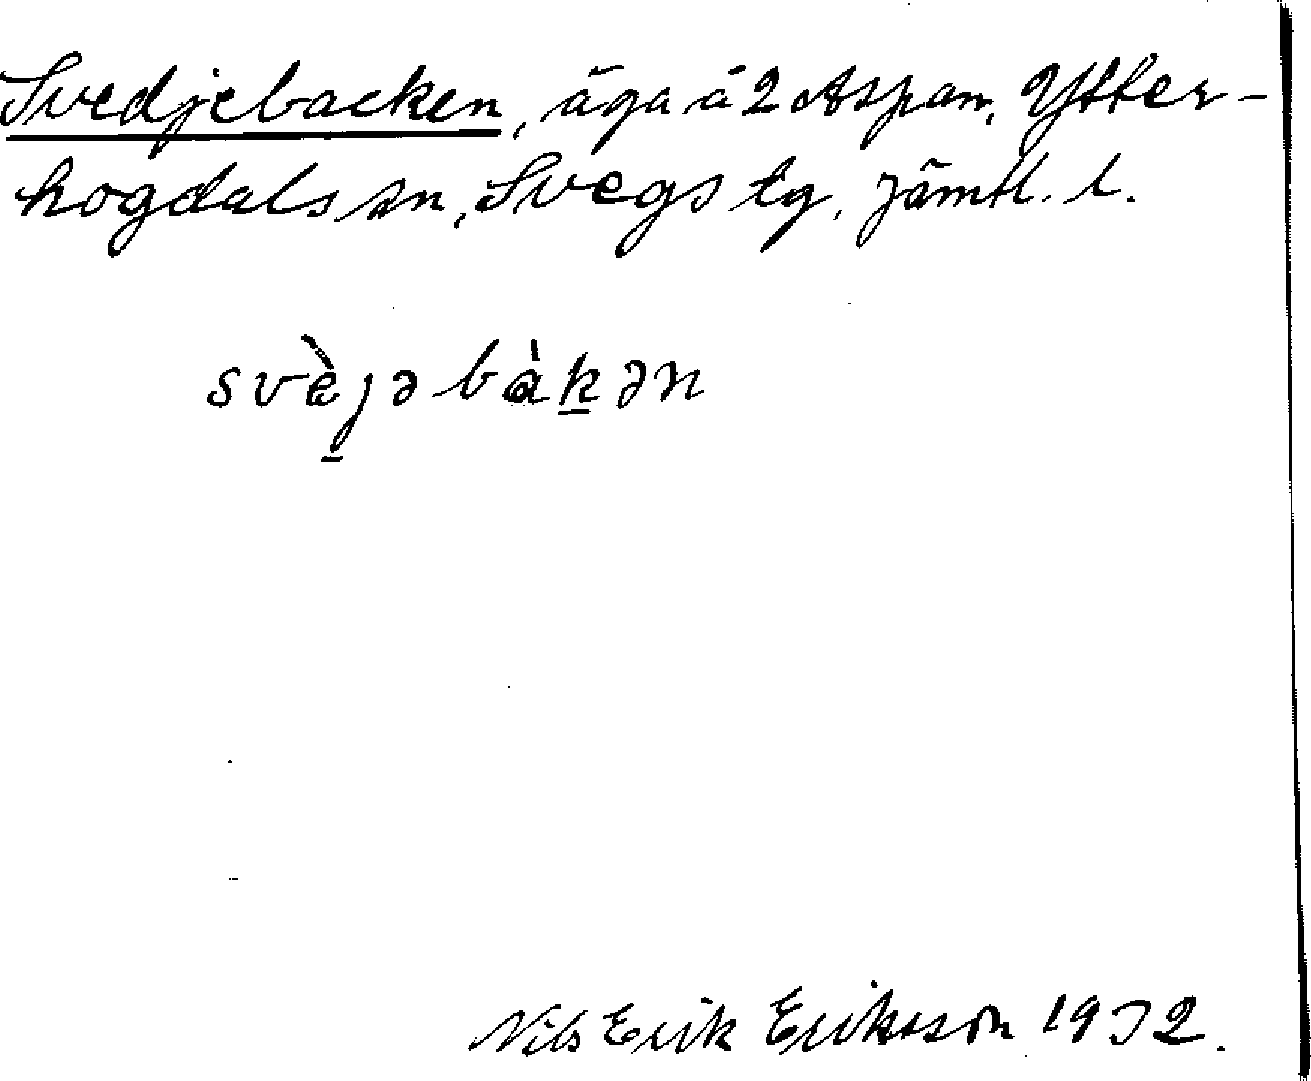 Svedjebacken, äga å 2 Aspan, Ytter-
hogdals sn, Svegs tg, Jämtl. l.
svèjəbàkən
Nils Erik Eriksson 1932.